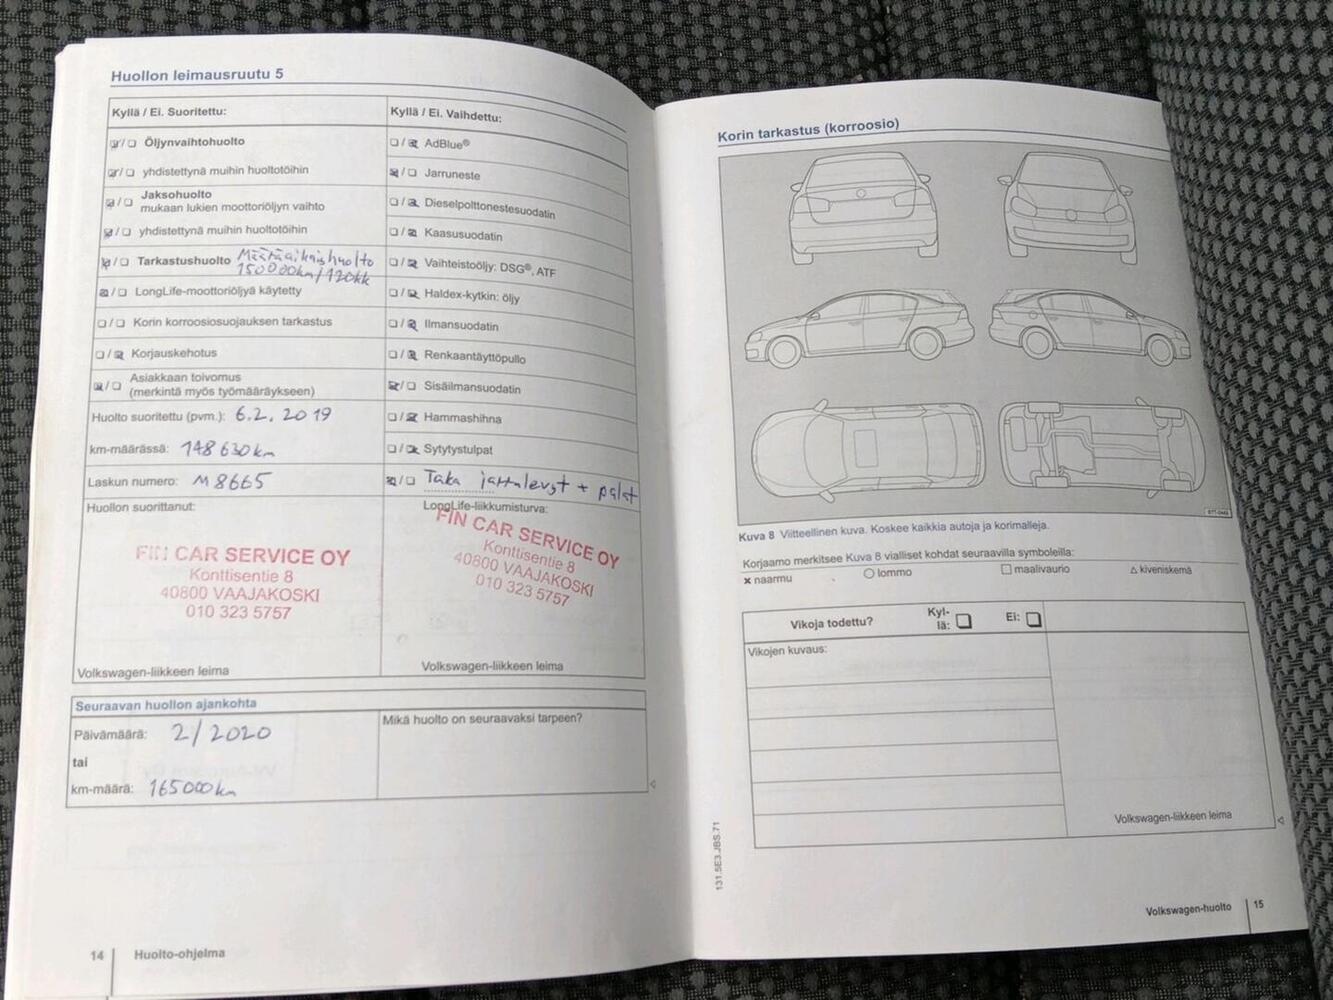 Huollon leimausruutu 5
Kyllä / Ei. Suoritettu:
☑/☐ Öljynvaihtohuolto
☑/☐ yhdistettynä muihin huoltotöihin
☑/☐ Jaksohuolto
mukaan lukien moottoriöljyn vaihto
☑/☐ yhdistettynä muihin huoltotöihin
☑/☐ Tarkastushuolto Määräaikaishuolto
150000km/120kk
☑/☐ LongLife-moottoriöljyä käytetty
☐/☐ Korin korroosiosuojauksen tarkastus
☐/☑ Korjauskehotus
☑/☐ Asiakkaan toivomus
(merkintä myös työmääräykseen)
Huolto suoritettu (pvm.): 6.2.2019
km-määrässä: 148630km
Laskun numero: M8665
Huollon suorittanut:
FIN CAR SERVICE OY
Konttisentie 8
40800 VAAJAKOSKI
010 323 5757
Volkswagen-liikkeen leima
Kyllä / Ei. Vaihdettu:
☐/☑ AdBlue®
☑/☐ Jarruneste
☐/☑ Dieselpolttonestesuodatin
☐/☑ Kaasusuodatin
☐/☑ Vaihteistoöljy: DSG®, ATF
☐/☑ Haldex-kytkin: öljy
☐/☑ Ilmansuodatin
☐/☑ Renkaantäyttöpullo
☑/☐ Sisäilmansuodatin
☐/☑ Hammashihna
☐/☑ Sytytystulpat
☑/☐ Taka jarrulevyt + palat
LongLife-liikkumisturva:
FIN CAR SERVICE OY
Konttisentie 8
40800 VAAJAKOSKI
010 323 5757
Volkswagen-liikkeen leima
Seuraavan huollon ajankohta
Päivämäärä: 2/2020
tai
km-määrä: 165000km
Mikä huolto on seuraavaksi tarpeen?
14 Huolto-ohjelma
Korin tarkastus (korroosio)
Kuva 8 Viitteellinen kuva. Koskee kaikkia autoja ja korimalleja.
Korjaamo merkitsee Kuva 8 vialliset kohdat seuraavilla symboleilla:
✕ naarmu ○ lommo ☐ maalivaurio △ kiveniskemä
Vikoja todettu? Kyl-
lä: ☐ Ei: ☐
Vikojen kuvaus:
Volkswagen-liikkeen leima
131.5E3.JBS.71
Volkswagen-huolto 15